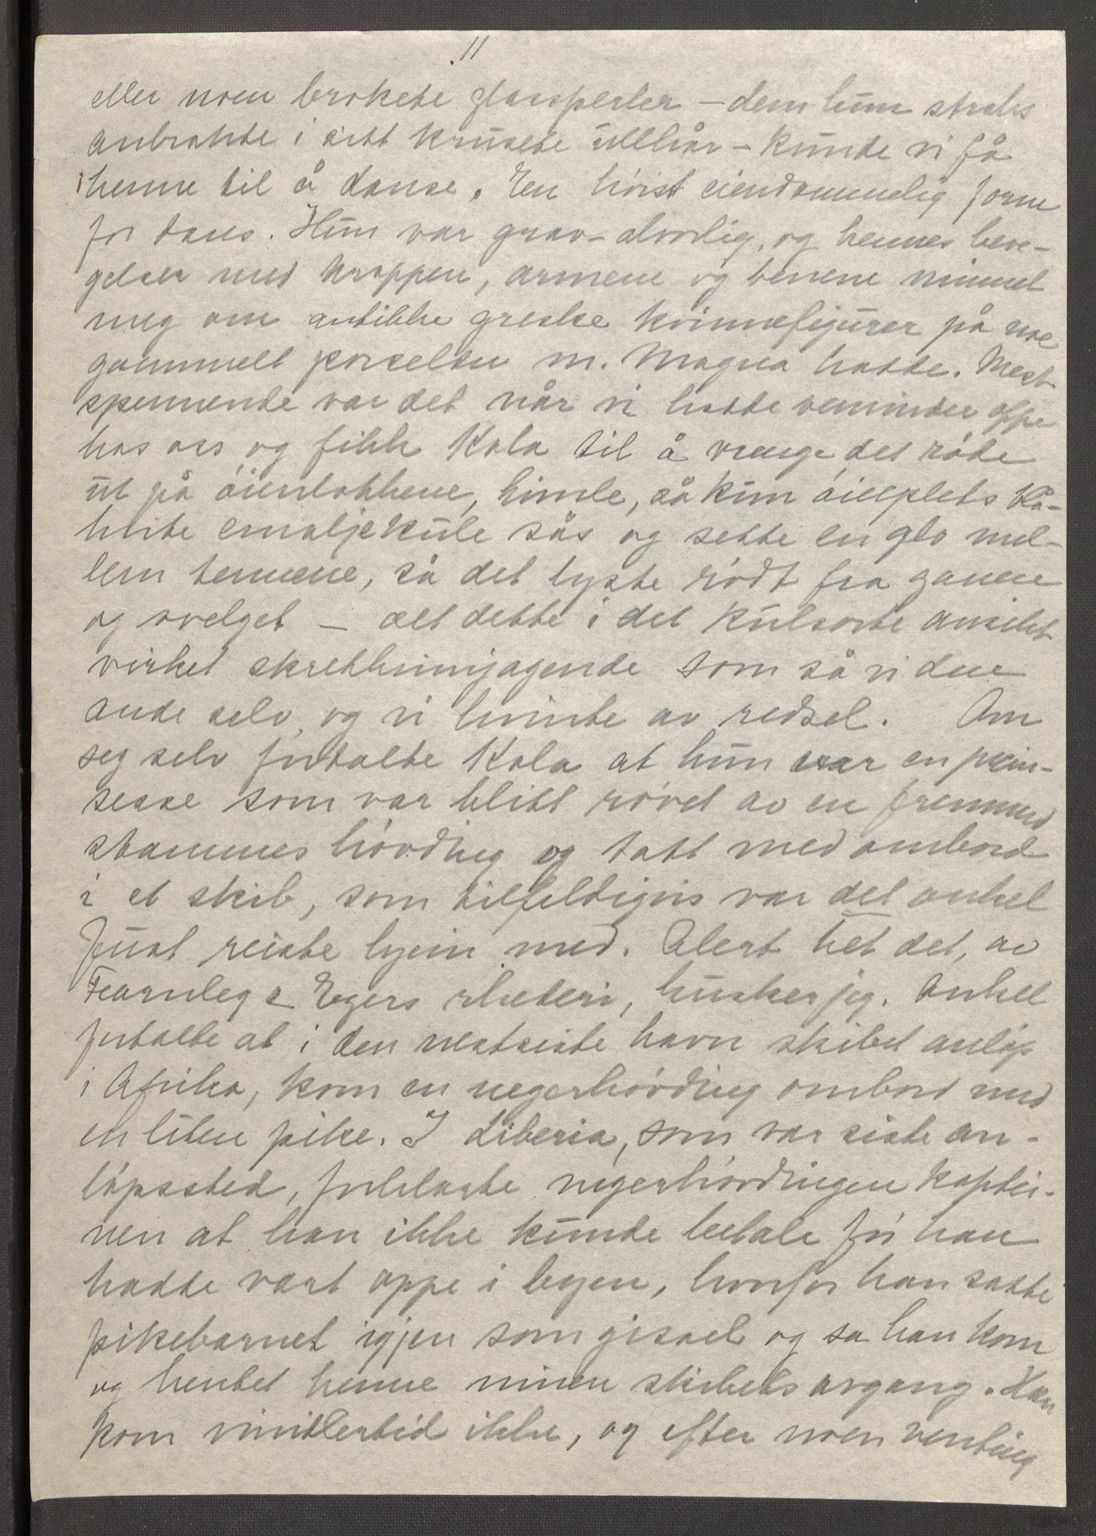 11
eller noen brokete glassperler – dem hun straks
anbrakte i sitt krusete ullhår – kunde vi få
henne til å danse. En høist eiendommelig form
for dans. Hun var grav-alvorlig, og hennes beve-
gelser med kroppen, armene og benene minnet
meg om antikke greske kvinnefigurer på noe
gammelt porselen m. Magna hadde. Mest
spennende var det når vi hadde veninder oppe
hos oss og fikk Kola til å vrenge det røde
ut på öienlokkene, himle, så kun öieeplets blå-
hvite emaljekule sås og sette en glo mel-
lem tennene, så det lyste rødt fra ganen
og svelget – alt dette i det kulsorte ansikt
virket skrekkinnjagende som så vi den
onde selv, og vi hvinte av redsel. Om
seg selv fortalte Kola at hun var en prin-
sesse som var blitt røvet av en fremmed
stammes høvding og tatt med ombord
i et skib, som tilfeldigvis var det onkel
Just reiste hjem med. Alert het det, av
Fearnley & Egers rhederi, husker jeg. Onkel
fortalte at i den nestsiste havn skibet anløp
i Afrika, kom en negerhøvding ombord med
en liten pike. I Liberia, som var siste an-
löpssted, forklarte negerhøvdingen kaptei-
nen at han ikke kunde betale før han
hadde vært oppe i byen, hvorfor han satte
pikebarnet igjen som gissel og sa han kom
og hentet henne innen skibets avgang. Han
kom imidlertid ikke, og efter noen venting